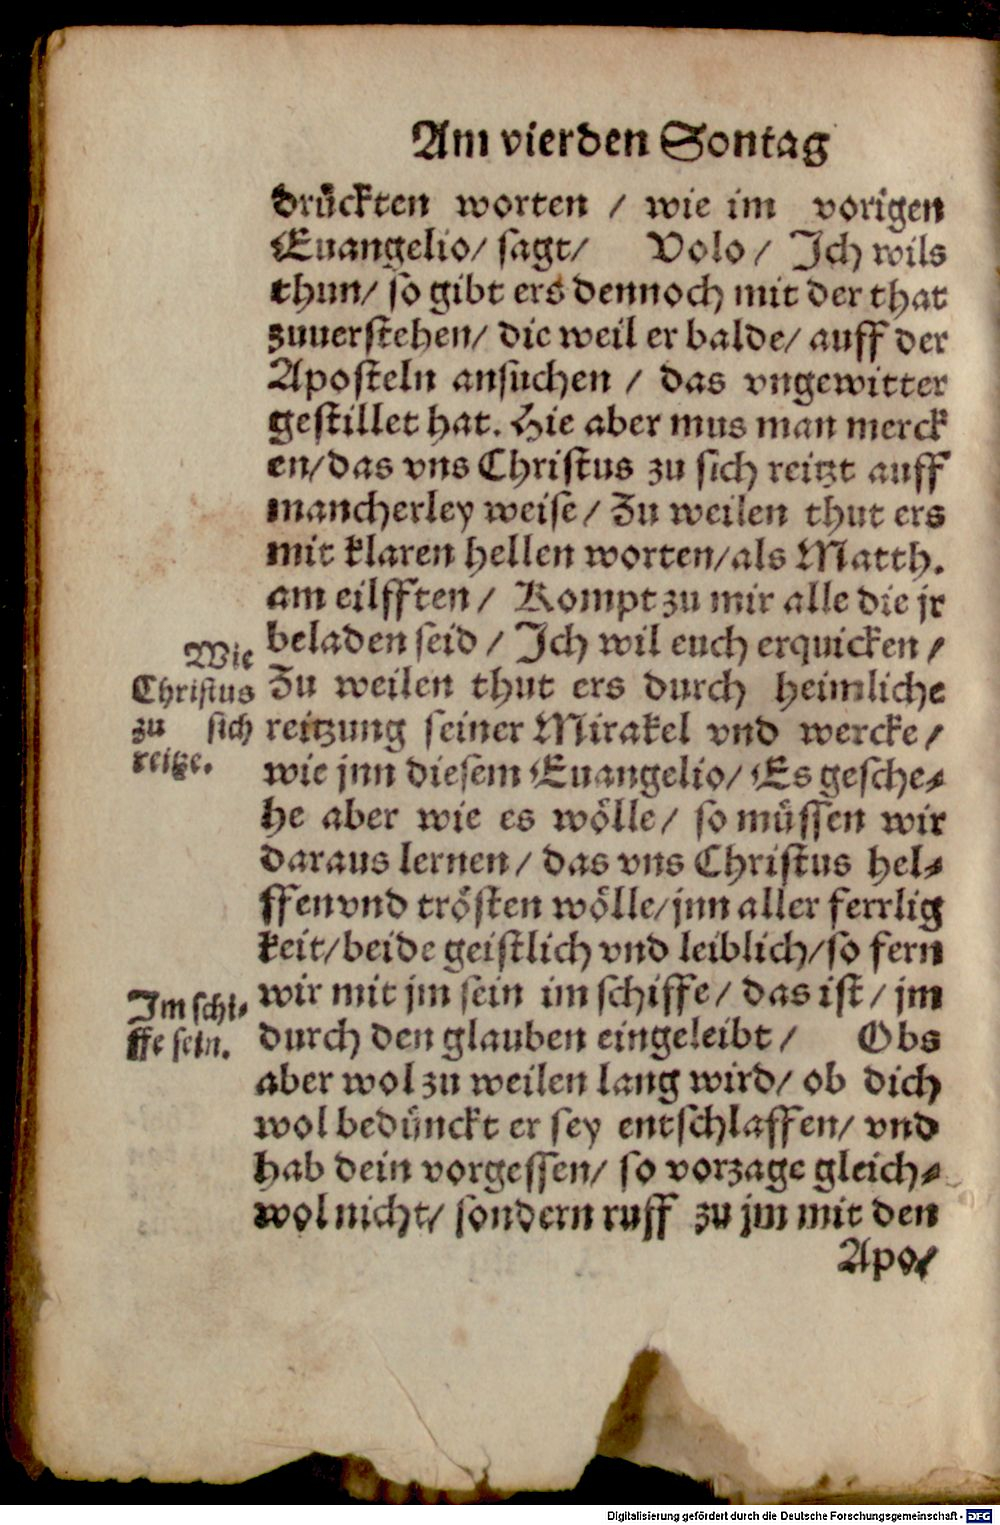 Am vierden Sontag
druͤckten worten / wie im vorigen
Euangelio/ sagt/ Volo / Ich wils
thun/ so gibt ers dennoch mit der that
zuuerstehen/ die weil er balde/ auff der
Aposteln ansuchen / das vngewitter
gestillet hat. Hie aber mus man merck
en/das vns Christus zu sich reitzt auff
mancherley weise/ Zu weilen thut ers
mit klaren hellen worten/als Matth.
am eilfften/ Kompt zu mir alle die jr
beladen seid / Ich wil euch erquicken /
Zu weilen thut ers durch heimliche
reitzung seiner Mirakel vnd wercke/
wie jnn diesem Euangelio/ Es gesche-
he aber wie es woͤlle/ so muͤssen wir
daraus lernen/ das vns Christus hel-
ffen vnd troͤsten woͤlle/jnn aller ferrlig
keit/beide geistlich vnd leiblich/so fern
wir mit jm sein im schiffe/ das ist/ jm
durch den glauben eingeleibt / Obs
aber wol zu weilen lang wird/ ob dich
wol beduͤnckt er sey entschlaffen/ vnd
hab dein vorgessen/ so vorzage gleich-
wol nicht/ sondern ruff zu jm mit den
Apo-
Wie
Christus
zu sich
reitze.
Im schi-
ffe sein.
Digitalisierung gefördert durch die Deutsche Forschungsgemeinschaft - DFG